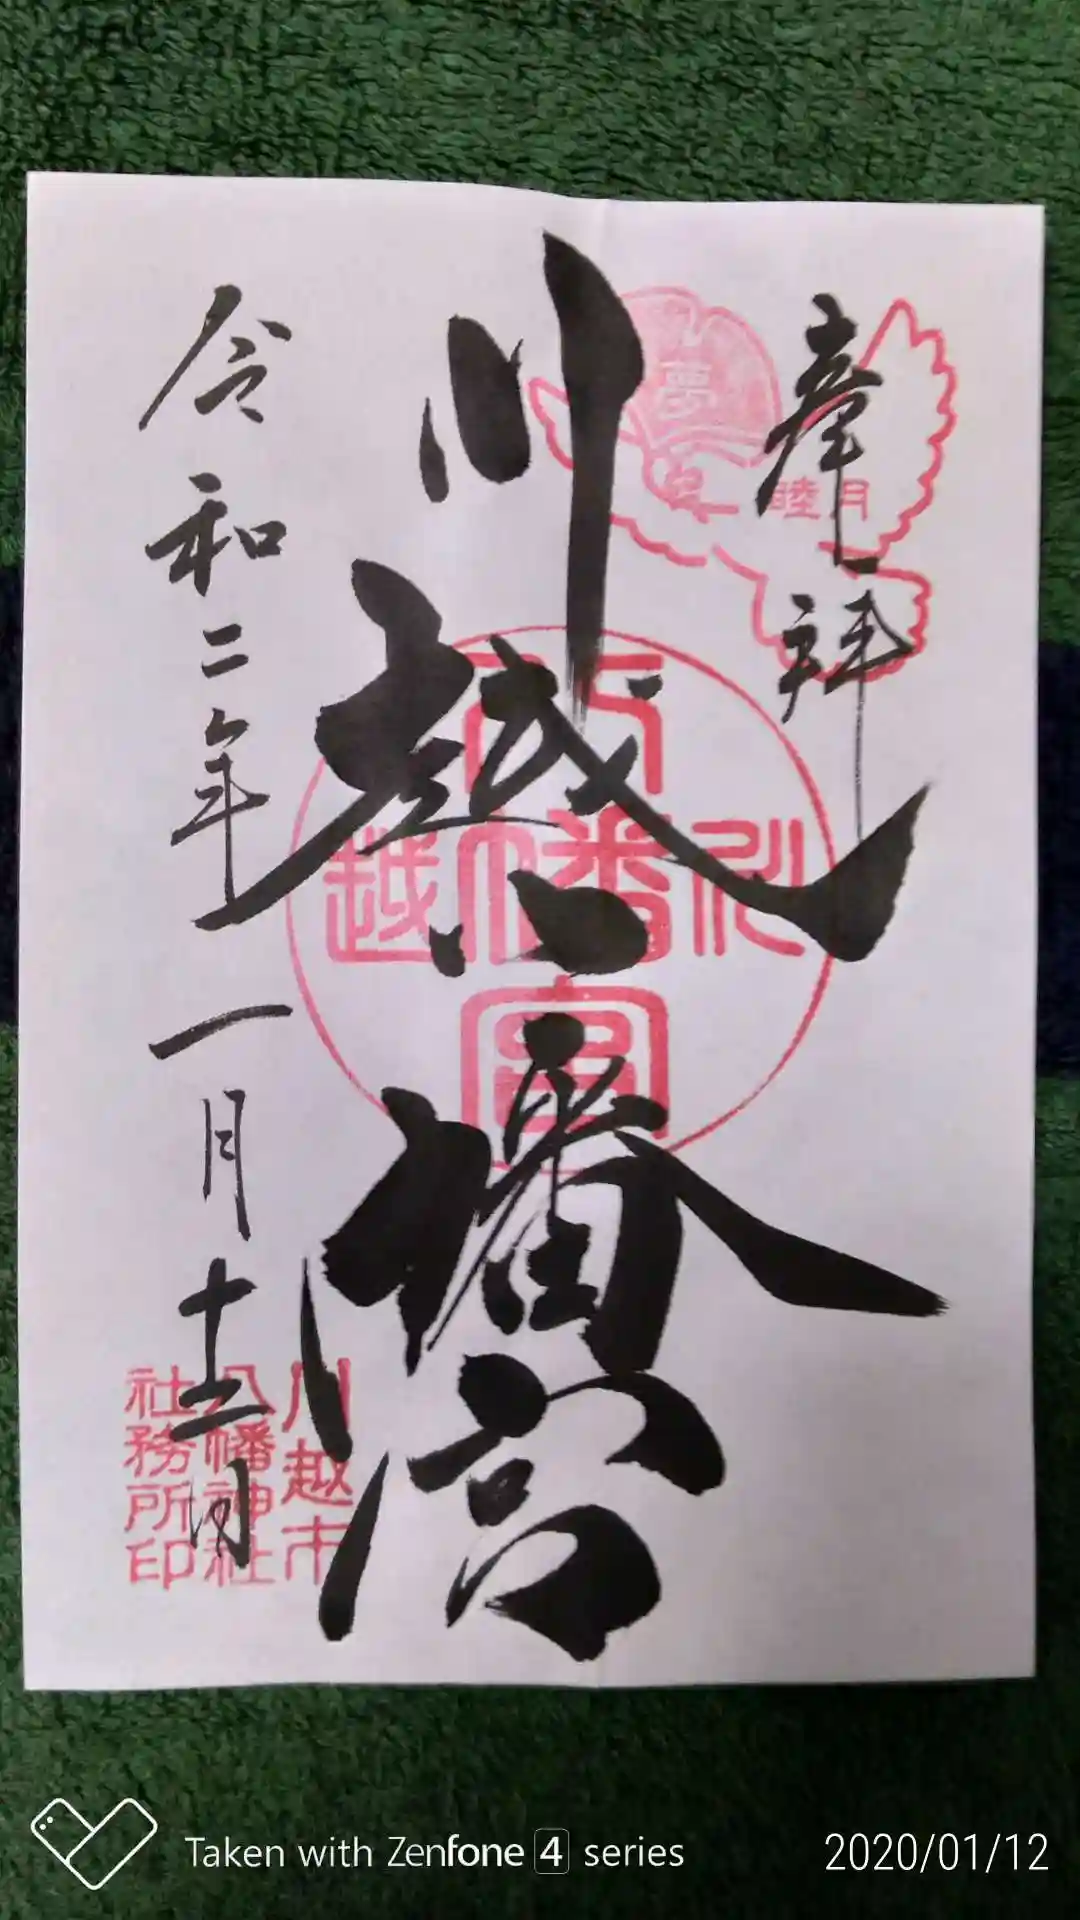 奉拝
夢
睦月
川越八幡宮
川越
八幡宮
令和二年一月十二日
川越市
八幡神社
社務所印
Taken with Zenfone 4 series
2020/01/12